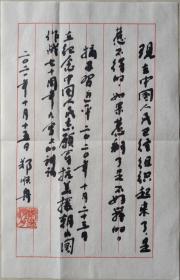 现在中国人民已经组织起来了是
惹不得的。如果惹翻了是不好办的。
摘习近平二〇二〇年十月二十三日
在纪念中国人民志愿军抗美援朝出国
作战七十周年大会上的讲话
二〇二〇年十月二十五日 郑